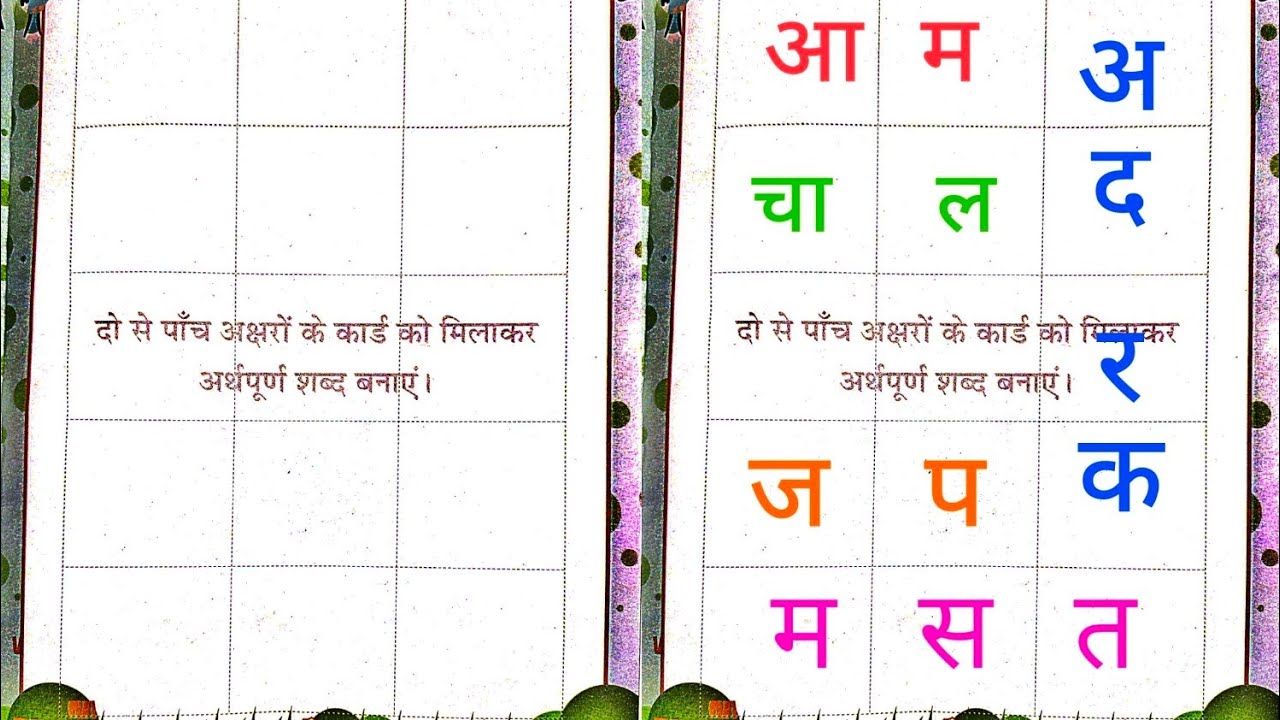 दो से पाँच अक्षरों के कार्ड को मिलाकर
अर्थपूर्ण शब्द बनाएं।
आ म अ
चा ल द
दो से पाँच अक्षरों के कार्ड को मिलाकर
अर्थपूर्ण शब्द बनाएं।
र
ज प क
म स त